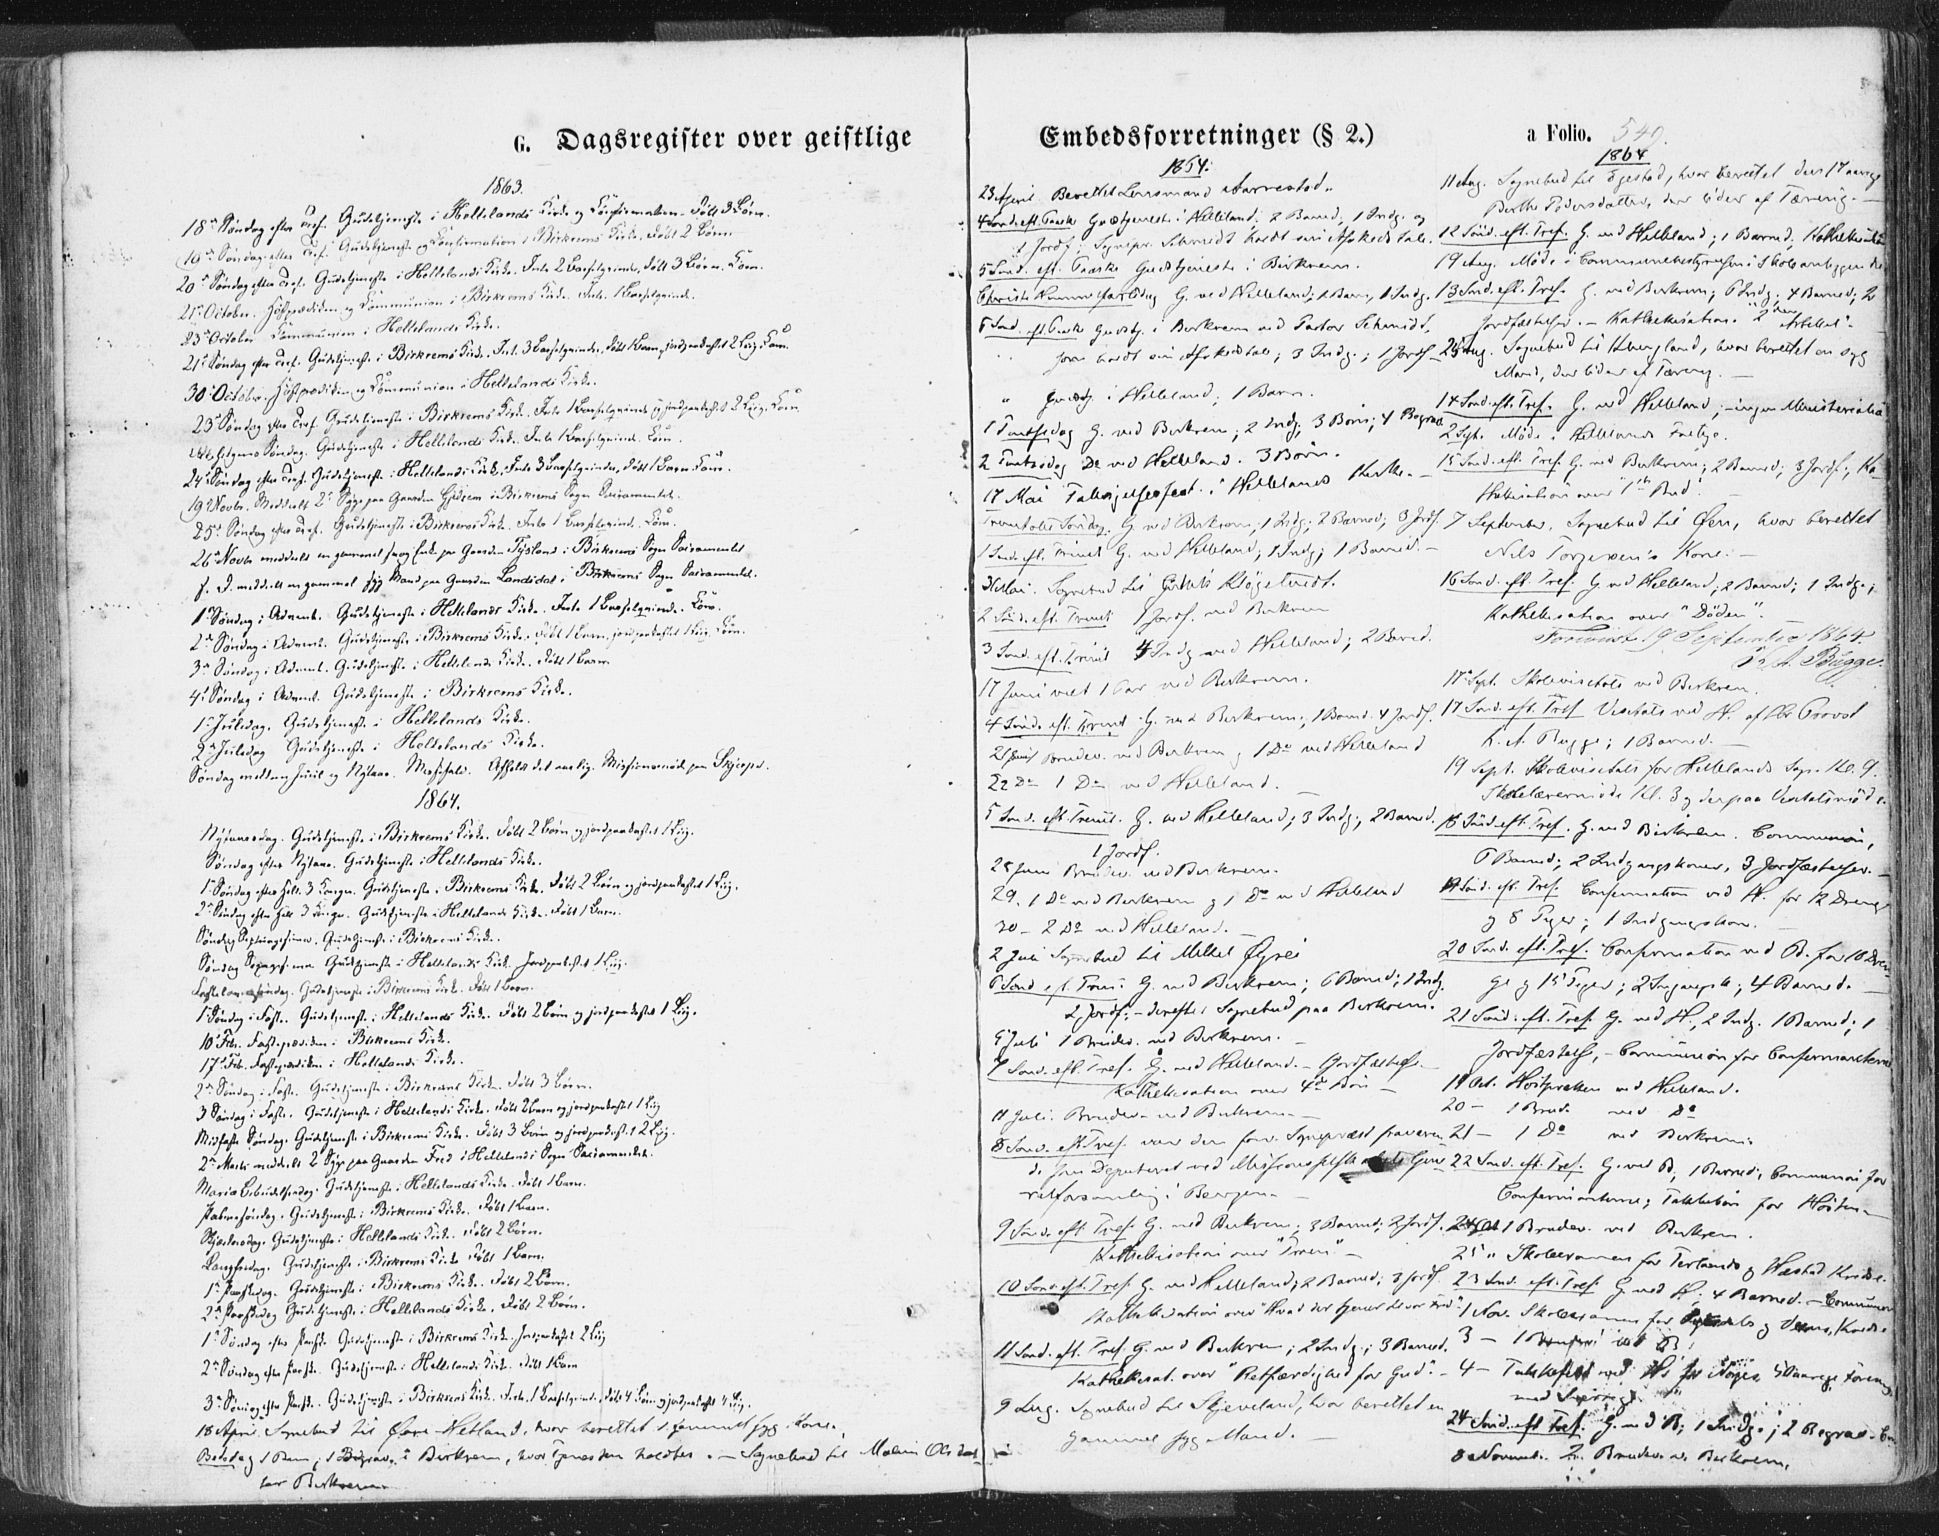 G. Dagsregister over geistlige
1863.
18de Søndag efter Tref. Gudstjeneste i Hellelands Kirke og Confirmation. Døbt 3 Børn.
19de Søndag efter Tref. Gudstjeneste og Confirmation i Birkrems Kirke. Døbt 2 Børn.
20de Søndag efter Tref. Gudstjeneste i Hellelands Kirke. Intr. 2 Barselqvinder, døbt 3 Børn.
21de October. Høstprædiken og Communion i Birkrems Kirke. Intr. 1 Barselqvinde.
23de October Communion i Hellelands Kirke.
21de Søndag efter Tref. Gudstjeneste i Birkrems Kirke. Intr. 3 Barselqvinder, døbt 1 Barn, jordpaakastet 2 Liig.
30 October. Høstprædiken og Communion i Hellelands Kirke.
23de Søndag efter Tref. Gudstjeneste i Birkrems Kirke. Intr. 1 Barselqvinde og jordpaakastet 2 Liig.
Allehelgens Søndag. Gudstjeneste i Hellelands Kirke. Intr. 1 Barselqvinde.
24de Søndag efter Tref. Gudstjeneste i Hellelands Kirke. Intr. 3 Barselqvinder, døbt 1 Barn.
19de Novbr. Meddelt 2de Syge paa Gaarden Gjedrem i Birkrems Sogn Sacramentet.
25de Søndag efter Tref. Gudstjeneste i Birkrems Kirke. Intr. 1 Barselqvinde.
26de Novbr. meddelt en gammel syg Enke paa Gaarden Tysland i Birkrems Sogn Sacramentet
s. D. meddelt en gammel syg Mand paa Gaarden Landsdal i Birkrems Sogn Sacramentet.
1ste Søndag i Advent. Gudstjeneste i Hellelands Kirke. Intr. 1 Barselqvinde.
2den Søndag i Advent. Gudstjeneste i Birkrems Kirke. Døbt 1 Barn, jordpaakastet 1 Liig.
3die Søndag i Advent. Gudstjeneste i Hellelands Kirke. Døbt 1 Barn.
4de Søndag i Advent. Gudstjeneste i Birkrems Kirke.
1ste Juledag. Gudstjeneste i Hellelands Kirke.
2den Juledag Gudstjeneste i Hellelands Kirke.
Søndag mellem Juul og Nytaar. Messefald. Afholdt det aarlige Missionsmøde paa
1864.
Nytaarsdag. Gudstjeneste i Birkrems Kirke. Døbt 2 Børn og jordpaakastet 1 Liig.
Søndag efter Nytaar. Gudstjeneste i Hellelands Kirke.
1ste Søndag efter Hell. 3 Konger. Gudstjeneste i Birkrems Kirke. Døbt 2 Børn og jordpaakastet 1 Liig.
2den Søndag efter Hell. 3 Konger. Gudstjeneste i Hellelands Kirke. Døbt 1 Barn.
Søndag Septuagesima. Gudstjeneste i Birkrems Kirke.
Søndag Sexagesima Gudstjeneste i Hellelands Kirke. Jordpaakastet 1 Liig.
Fastelavnssøndag. Gudstjeneste i Birkrems Kirke. Døbt 1 Barn.
1ste Søndag i Faste. Gudstjeneste i Hellelands Kirke. Døbt 2 Børn og jordpaakastet 1 Liig.
10de Febr. Fasteprædiken i Birkrems Kirke.
17de Feb. Fasteprædiken i Hellelands Kirke.
2den Søndag i Faste. Gudstjeneste i Birkrems Kirke. Døbt 3 Børn.
3die Søndag i Faste. Gudstjeneste i Hellelands Kirke. Døbt 2 Børn og jordpaakastet 1 Liig
Midfaste Søndag. Gudstjeneste i Birkrems Kirke. Døbt 3 Børn og jordpaakastet 2 Liig.
2den Marts meddelt 2de Syge paa Gaarden Fred i Hellelands Sogn Sacramentet.
Mariæ Bebudelsesdag. Gudstjeneste i Hellelands Kirke. Døbt 1 Barn.
Palmesøndag. Gudstjeneste i Birkrems Kirke. Døbt 1 Barn.
Skjærtorsdag. Gudstjeneste i Hellelands Kirke. Døbt 2 Børn.
Langfredag. Gudstjeneste i Birkrems Kirke. Døbt 1 Barn.
1ste Paaskedag. Gudstjeneste i Birkrems Kirke. Døbt 2 Børn.
2den Paaskedag Gudstjeneste i Hellelands Kirke. Døbt 2 Børn.
1ste Søndag efter Paaske. Gudstjeneste i Birkrems Kirke. Jordpaakastet 2 Liig
2den Søndag efter Paaske. Gudstjeneste i Hellelands Kirke. Døbt 1 Barn
3die Søndag efter Paaske. Gudstjeneste i Birkrems Kirke. Intr. 1 Barselqvinde, døbt 4 Børn og jordpaakastet 4 Liig.
18 April. Sognebud til Øvre Hetland, hvor berettet 1 gammel syg Kone.
Bededag 1 Barn, 1 Begrav. i Birkrem, hvor Tjenesten holdtes. — Sognebud til Malene Olsdatter
Birkrem
Embedsforretninger (§ 2.)
1864.
23 April. Berettet Lensmand Aarrestad.
4 Sønd. eft. Paaske Gudstjeneste i Helleland. 2 Barned, 1 Indg. og
1 Jordf. Sognepr. Schmidt holdt sin Afskeds Tale.
5 Sønd. eft. Paaske Gudstjeneste i Birkrem.
Christi Himmelfartsdag G. ved Helleland; 1 Barn, 1 Indg.
6 Sønd. eft. Paaske Gudstj. i Birkrem ved Pastor Schmidt,
som holdt sin Afskedstale; 3 Indg.; 1 Jordf.
" Gudstj. i Helleland; 1 Barn.
1 Pintsedag G. ved Birkrem; 2 Indg. 3 Børn; 4 Begrav.
2 Pintsedag Do ved Helleland. 3 Børn.
17 Mai i Hellelands Kirke. —
Trinitatis Søndag. G. ved Birkrem; 1 Indg.; 2 Barned; 3 Jordf.
1 Sønd. eft. Trinit G. ved Helleland; 1 Indg; 1 Barned. —
Mai. Sognebud til Kløgetvedt.
2 Sønd. eft. Trinit 1 Jordf. ved Birkrem
3 Sønd. eft. Trinit 4 Indg ved Helleland; 2 Barned.
17 Juni viet 1 Par ved Birkrem.
4 Sønd. eft. Trinit G. ved Birkrem; 1 Barned. 4 Jordf.
21 Juni Brudev. ved Birkrem og 1 Do ved Helleland
22 Do 1 Do ved Helleland. —
5 Sønd. eft. Trinit. G. ved Helleland; 3 Indg.; 2 Barned.
1 Jordf.
28 Juni Brudev. ved Birkrem.
29. 1 Do ved Birkrem og 1 Do ved Helleland
30 – 2 Do ved Helleland. —
2 Juli Sognebud til Mikkel
6 Sønd. eft. Trin. G. ved Birkrem; 6 Barned; 1 Indg.
2 Jordf; – derefter Sognebud paa Birkrem.
5 Juli 1 Brudev. ved Birkrem. —
7 Sønd. eft. Tref. G. ved Helleland. – Jordfæstelse. —
Kathekisation over 4de Bøn —
11 Juli. Brudev. ved Birkrem. —
8 Sønd. eft Tref. var den Sognepræst fraværende
Deputeret ved Missionsselskabets Gene-
ralforsamling i Bergen. —
9 Sønd. eft. Tref. G. ved Birkrem; 3 Barned; 2 Jordf.
Kathekisation over "Troen" —
10 Sønd. eft. Tref. G. ved Helleland; 2 Barned; 3 Jordf.
Kathekisation over "Hvad der hører til vor Fred".
11 Sønd. eft. Tref. G. ved Birkrem; 2 Indg.; 3 Barned.
Kathekisat. over "Retfærdighed for Gud". —
9 Aug. Sognebud til Skjeveland, hvor berettet en
gammel syg Mand. —
a Folio. 540.
1864
11 Aug. Sognebud til Egestad, hvor berettet den 17 aarige
Berthe Pedersdatter, der lider af Tærering. —
12 Sønd. eft. Tref. G. ved Helleland; 1 Barned, Kathekisation
19 Aug. Møde i Communebestyrelsen i Skoleanliggender
13 Sønd. eft. Tref. G. ved Birkrem; 6 Indg.; 4 Barned; 2
Jordfæstelser. – Kathekisation "2den Artikel".
25 Aug. Sognebud til hvor berettet en syg
Mand, der lider af Tæring. —
14 Sønd. eft. Tref. G. ved Helleland; – ingen Ministerialia
2 Sept. Møde i Hellelands
15 Sønd. eft. Tref. G. ved Birkrem; 2 Barned; 3 Jordf.; Ka-
thekisation over "1ste Bud". —
7 September. Sognebud til Øen, hvor berettet
Nils Torgersen's Kone. —
16 Sønd. eft. Tref. G. ved Helleland; 2 Barned; 1 Indg.;
Kathekisation over "Døden".
19 September 1864
Bugge.
17de Sept. Skolevisitats ved Birkrem.
17 Sønd. eft. Tref Visitats ved H. af Hr Provst
Bugge; 1 Barned. —
19 Sept. Skolevisitats for Hellelands Sogn Kl. 9.
Skolelærermøde Kl. 3 og derpaa Visitatsmøde.
18 Sønd. eft. Tref. G. ved Birkrem. Communion,
6 Barned; 2 Indgangskoner, 3 Jordfæstelser. —
19 Sønd. eft. Tref. Confirmation ved H. for 12 Drenge
og 8 Piger; 1 Indgangskone.
20 Sønd. eft. Tref. Confirmation ved B. for 10 Dren-
ge og 15 Piger; 2 Indgangsk; 4 Barned. —
21 Sønd. eft. Tref. G. ved H., 2 Indg. 1 Barned; 1
Jordfæstelse, – Communion for Confirmanterne
19 Oct. Høstpræken ved Helleland.
20 – 1 Brud. ved Do
21 – 1 Do ved Birkrem.
22 Sønd. eft. Tref. G. ved B; 1 Barned; Communion for
Confirmanterne; Takkebøn for Høsten. —
24 Oct 1 Brudev. ved Birkrem.
25 " Skoleexamen for Terlands og Hæstad Kredse.
23 Sønd. eft. Tref. G. ved H. 4 Barned. – Communion
1 Nov. Skoleexamen for og Kredse
3 – 1 ved B.
4 –
24 Sønd. eft Tref. G. ved B; 1 Indg.; 2 Begrav.
8 Novemb. 2 Brudev. v. Birkrem.